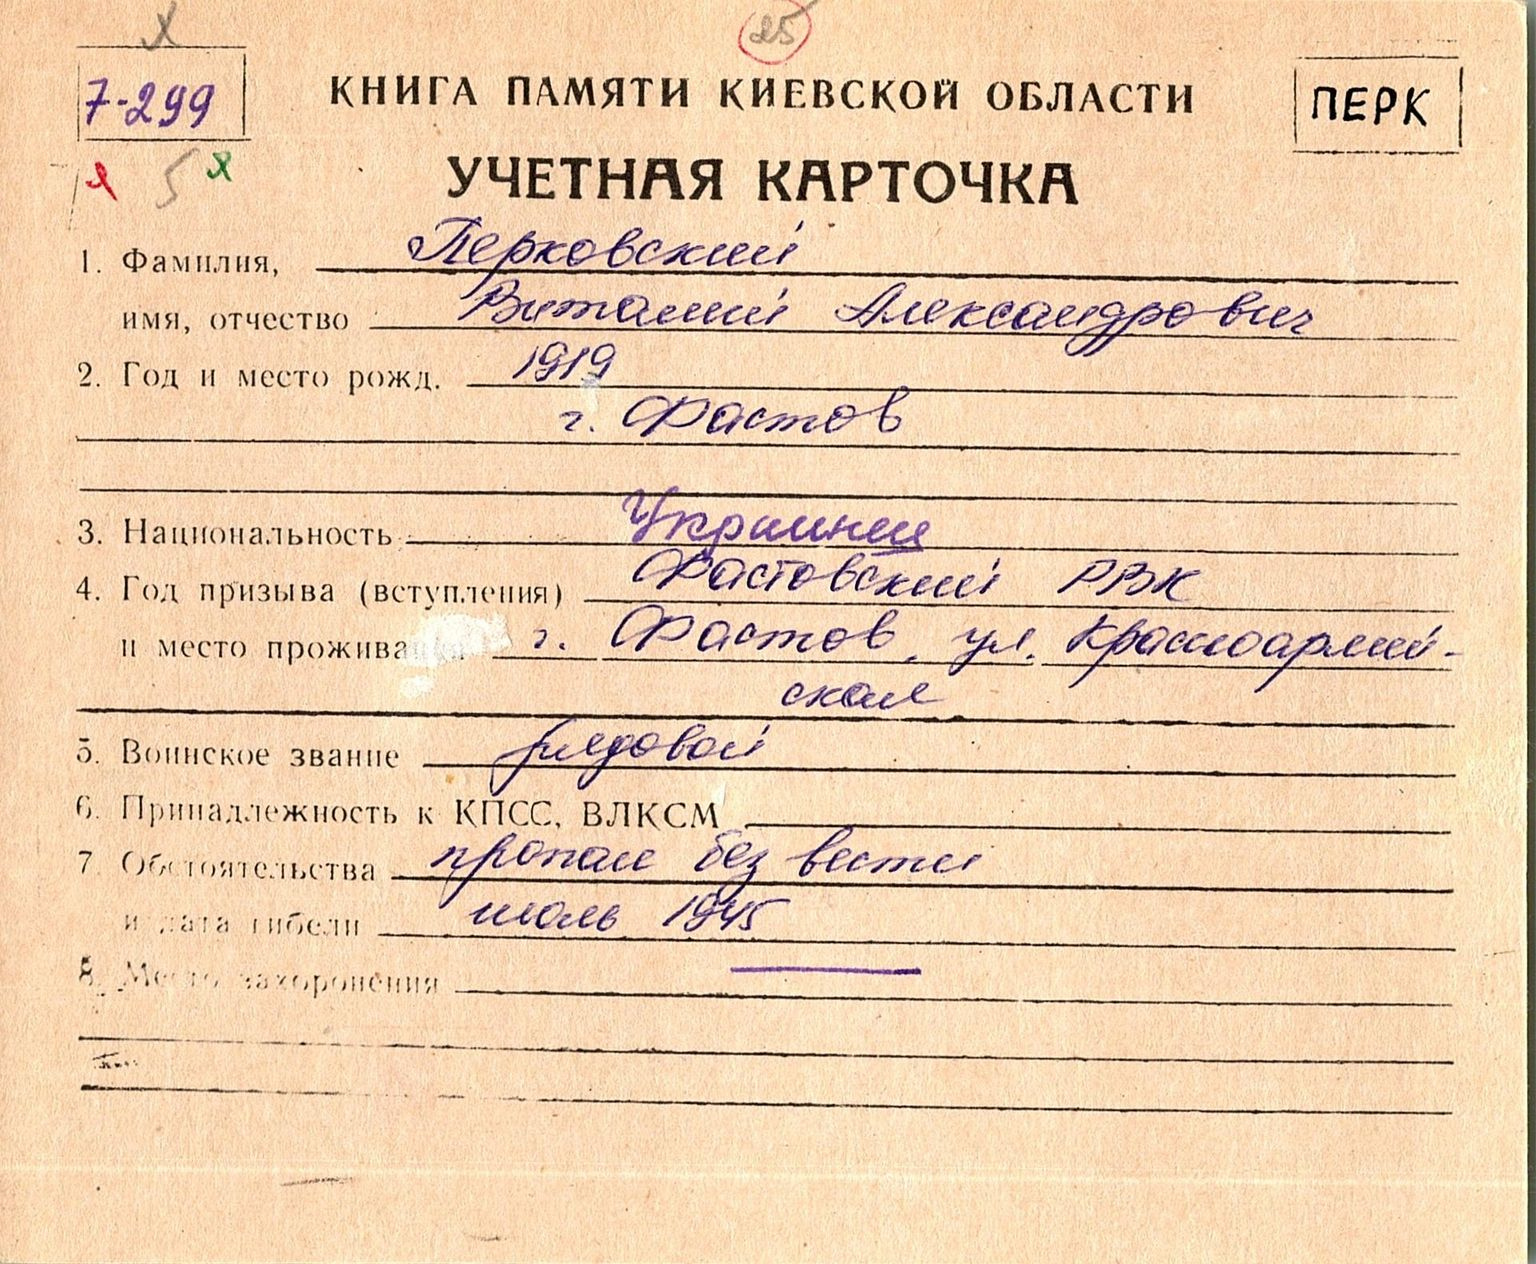 25
7-299
КНИГА ПАМЯТИ КИЕВСКОЙ ОБЛАСТИ
ПЕРК
5
УЧЕТНАЯ КАРТОЧКА
1. Фамилия, Перковский
имя, отчество Виталий Александрович
2. Год и место рожд. 1919
г. Фастов
3. Национальность Украинец
4. Год призыва (вступления) Фастовский РВК
и место прожива г. Фастов, ул. Красноармей-
ская
5. Воинское звание рядовой
6. Принадлежность к КПСС, ВЛКСМ
7 Обстоятельства пропал без вести
и дата гибели июль 1945
8. Место захоронения